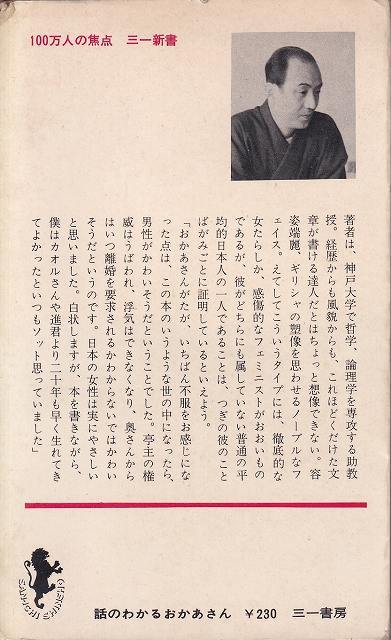 100万人の焦点 三一新書
著者は、神戸大学で哲学、論理学を専攻する助教
授。経歴からも風貌からも、これほどくだけた文
章が書ける達人だとはちょっと想像できない。容
姿端麗、ギリシャの塑像を思わせるノーブルなフ
ェイス。えてしてこういうタイプには、徹底的な
女たらしか、感傷的なフェミニストがおおいもの
であるが、彼がどちらにも属していない普通の平
均的日本人の一人であることは、つぎの彼のこと
ばがみごとに証明しているといえよう。
「おかあさんがたが、いちばん不服をお感じにな
った点は、この本のいうような世の中になったら、
男性がかわいそうだということでした。亭主の権
威はうばわれ、浮気はできなくなり、奥さんから
はいつ離婚を要求されるかわからないではかわい
そうだというのです。日本の女性は実にやさしい
と思いました。白状しますが、本を書きながら、
僕はカオルさんや進君より二十年も早く生れてき
てよかったといつもソット思っていました」
SAN-ICHI SHINSHO
話のわかるおかあさん ¥230 三一書房